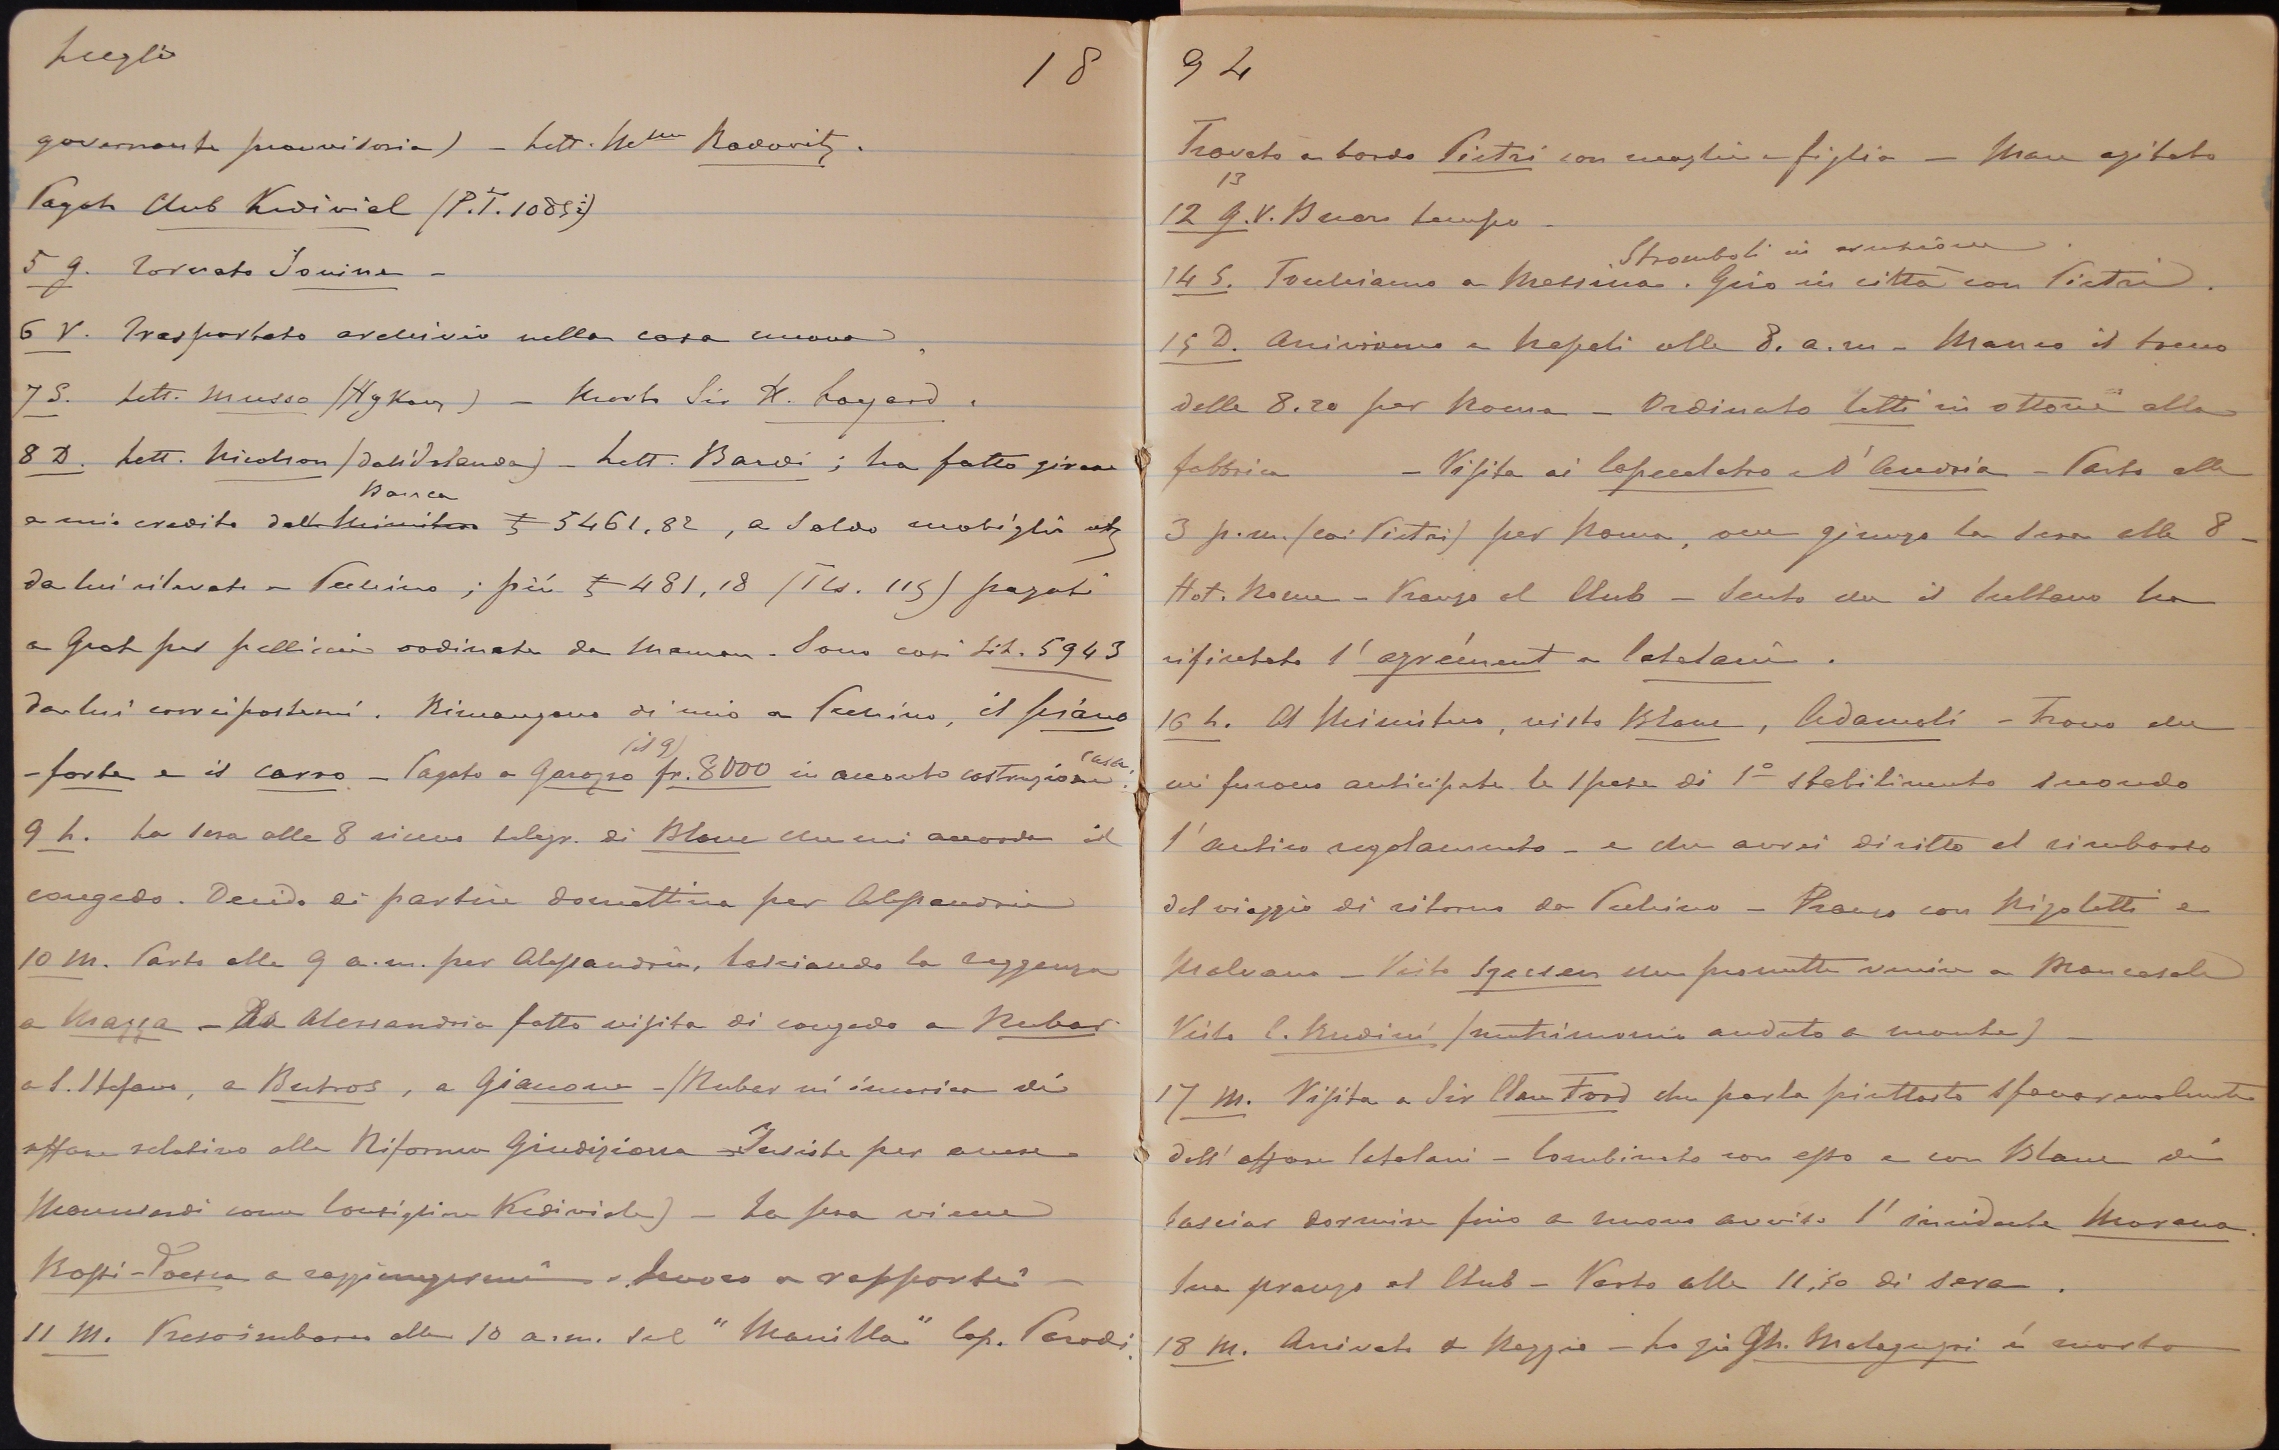 Luglio 18
governante provvisoria) - Lett. Mme Radowitz.
Pagato Club Kediviel (P.T. 1085 )
5 g. Tornato Ionine -
6 V. Trasportato archivio nella casa nuova
7 S. Lett. Musso /Hg Kong) - Morto Sir H. Layard.
8 D. Lett. Nicolson /dall'Islanda) - Lett. Bardi; ha fatto girare
Banca
a mio credito dall Ministero 5461,82, a Saldo mobiglia etc
da lui rilevata a Pechino; più 481,18 (Tls. 115) pagati
a Grot per pelliccie ordinate da Maman. Sono così Lit. 5943
da lui corrispostemi. Rimangono di mio a Pechino, il piano
(il 9) casa
-forte e il carro - Pagato a Garozzo fr. 8000 in acconto costruzione
9 L. La sera alle 8 ricevo telegr. di Blanc che mi accorda il
congedo. Decido di partire domattina per Alessandria
10 M. Parto alle 9 a.m. per Alessandria, lasciando la reggenza
a Mazza - Ad Alessandria fatto visita di congedo a Nubar
a S. Stefano, a Butros, a Giaccone - /Nubar m'incarica di
affare relativo alla Riforma Giudiziaria - Insiste per avere
come Consigliere Kediviale) - La sera viene
Rossi-Toesca a raggiungermi - Lavoro a rapporti -
11 M. Preso imbarco alle 10 a.m. sul "Manilla" Cap. Parodi.
94
Trovato a bordo Pietri con moglie e figlia - Mare agitato
13
12 g.V. Buon tempo -
Stromboli in eruzione.
14 S. Tocchiamo a Messina. Giro in città con Pietri.
15 D. Arriviamo a Napoli alle 8. a.m - Manco il treno
delle 8.20 per Roma - Ordinato letti in ottone alla
fabbrica - Visita ai Capecelatro e D'Andria - Parto alle
3 p.m. (coi Pietri) per Roma, ove giungo la sera alle 8 -
Hot. Rome - Pranzo al Club - Sento che il Sultano ha
rifiutato l'agrément a Catalani.
16 L. Al Ministero, visto Blanc, Adamoli - Trovo che
mi furono anticipate le spese di 1o stabilimento secondo
l'antico regolamento - e che avrei diritto al rimborso
del viaggio di ritorno da Pechino - Pranzo con Nigoletti e
Malvano - Visto che promette venire a Mancasale
Visto C. Rudinì /matrimonio andato a monte) -
17 M. Visita a Sir Clare Ford che parla piuttosto sfavorevolmente
dell'affare Catalani - Combinato con esso e con Blanc di
lasciar dormire fino a nuovo avviso l'incidente Morana.
Suo pranzo al Club - Parto alle 11.50 di sera.
18 M. Arrivato a Reggio - Lo zio Gh. Malaguzzi è morto